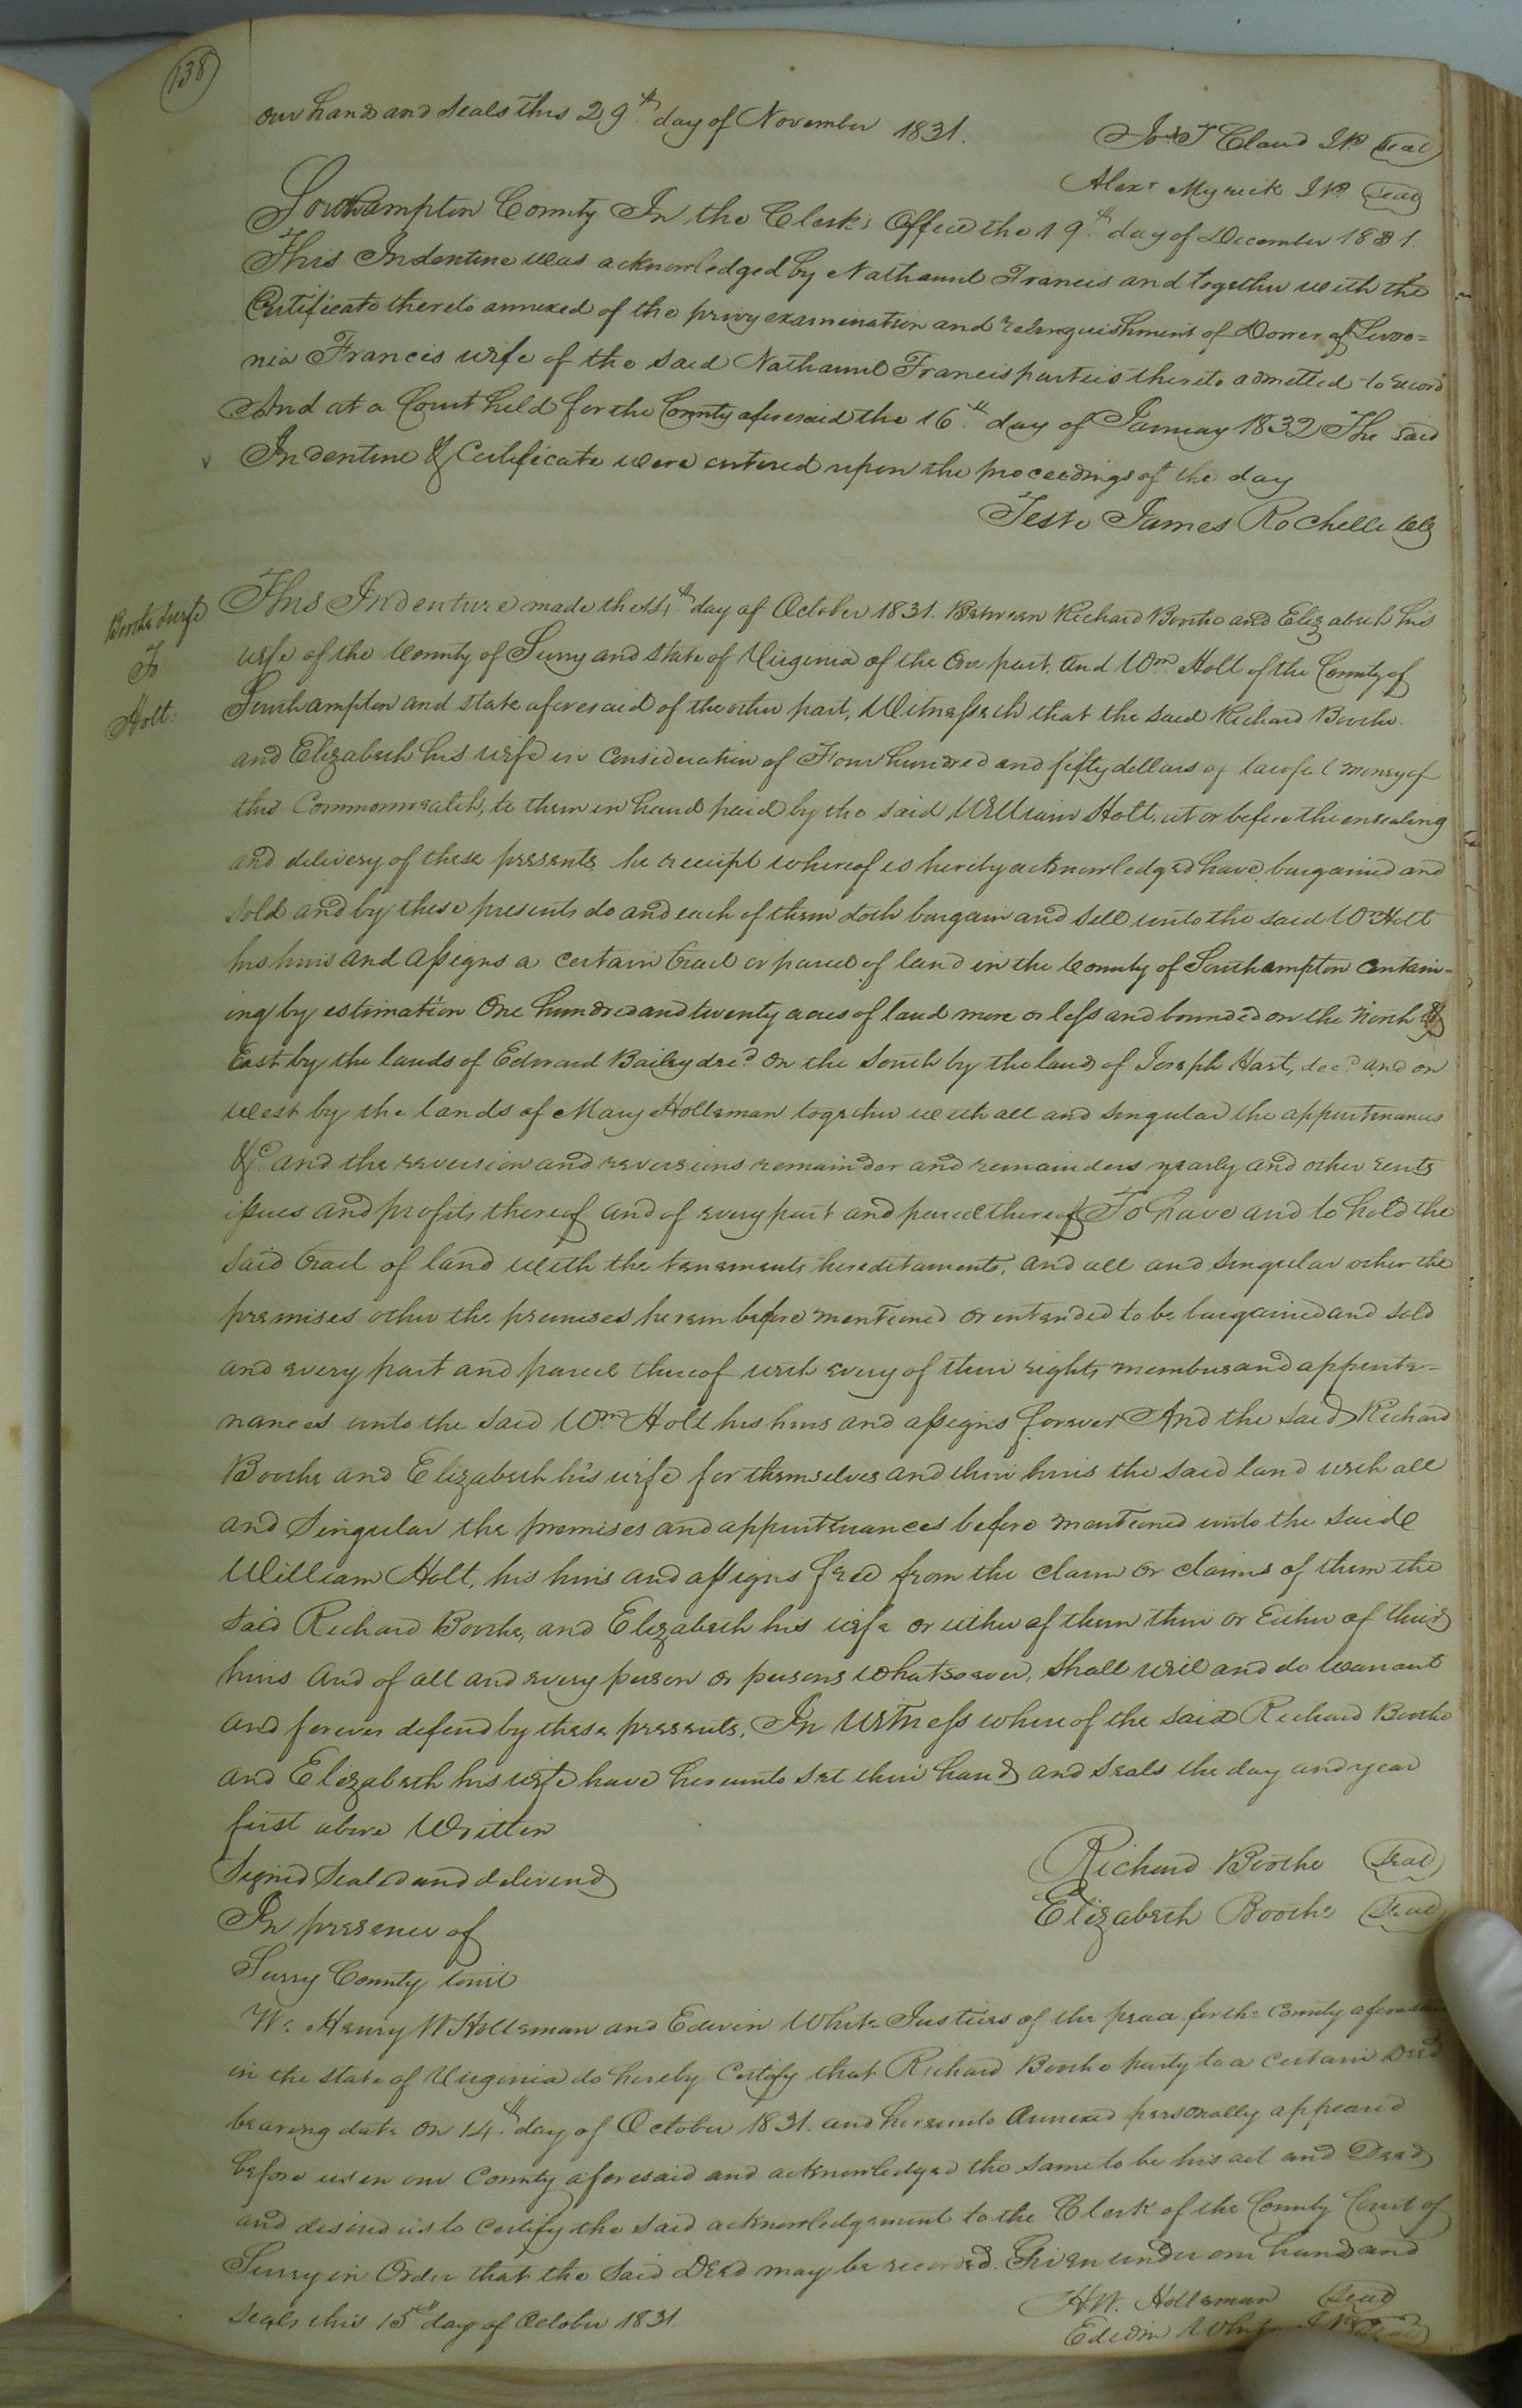 138
our hand and seals this 29th day of November 1831.
Jos T Claud JP Seal
Alexr Myrick JP Seal
Southampton County In the Clerk's Office the 19th day of December 1831.
This Indenture was acknowledged by Nathaniel Francis and together with the
Certificate thereto annexed of the privy examination and relinquishment of Dower of Lavi-
nia Francis wife of the said Nathaniel Francis parties thereto admitted to record
And at a Court held for the County aforesaid the 16th day of January 1832 The said
Indenture & Certificate were entered upon the proceedings of the day
Teste James Rochelle
Booth & wife
To
Holt:
This Indenture made the 14th day of October 1831. Between Richard Boothe and Elizabeth his
wife of the County of Surry and state of Virginia of the One part. and Wm Holt of the County of
Southampton and state aforesaid of the other part, Witnesseth that the said Richard Boothe.
and Elizabeth his wife in consideration of Four hundred and fifty dollars of lawful money of
this Commonwealth, to them in hand paid by the said William Holt, at or before the ensealing
and delivery of these presents he receipt whereof is hereby acknowledged have bargained and
sold and by these presents do and each of them doth bargain and sell unto the said Wm Holt
his heirs and assigns a certain tract or parcel of land in the County of Southampton contain-
ing by estimation One hundred and twenty acres of land more or less and bounded on the North &
East by the lands of Edward Bailey decd On the South by the land of Joseph Hart, decd and on
West by the lands of Mary Holleman together with all and singular the appurtenances
&c and the reversion and reversions remainder and remainders yearly and other rents
issues and profits thereof and of every part and parcel thereof To have and to hold the
said tract of land with the tenements hereditaments, and all and singular other the
premises other the premises herein before mentioned or intended to be bargained and sold
and every part and parcel thereof with every of their rights members and appurte-
nances unto the said Wm Holt his heirs and assigns forever And the said Richard
Boothe and Elizabeth his wife for themselves and their heirs the said land with all
and singular the premises and appurtenances before mentioned unto the said
William Holt, his heirs and assigns free from the claim or claims of them the
said Richard Boothe, and Elizabeth his wife or either of them their or Either of their
heirs and of all and every person or persons whatsoever, shall will and do warrant
and forever defend by these presents, In Witness whereof the said Richard Boothe
and Elizabeth his wife have hereunto set their hand and seals the day and year
first above Written
Signed Sealed and delivered
In presence of
Richard Boothe Seal
Elizabeth Boothe Seal
Surry County towit
We Henry W Holleman and Edwin White Justices of the peace for the County aforesaid
in the state of Virginia do hereby Certify that Richard Boothe party to a certain Deed
bearing date on 14th day of October 1831. and hereunto Annexed personally appeared
before us in our County aforesaid and acknowledged the same to be his act and Deed
and desired us to certify the said acknowledgement to the Clerk of the County Court of
Surry in Order that the said Deed may be recorded. Given under our hand and
seals this 15th day of October 1831.
H.W. Holleman Seal
Edwin White JP Seal